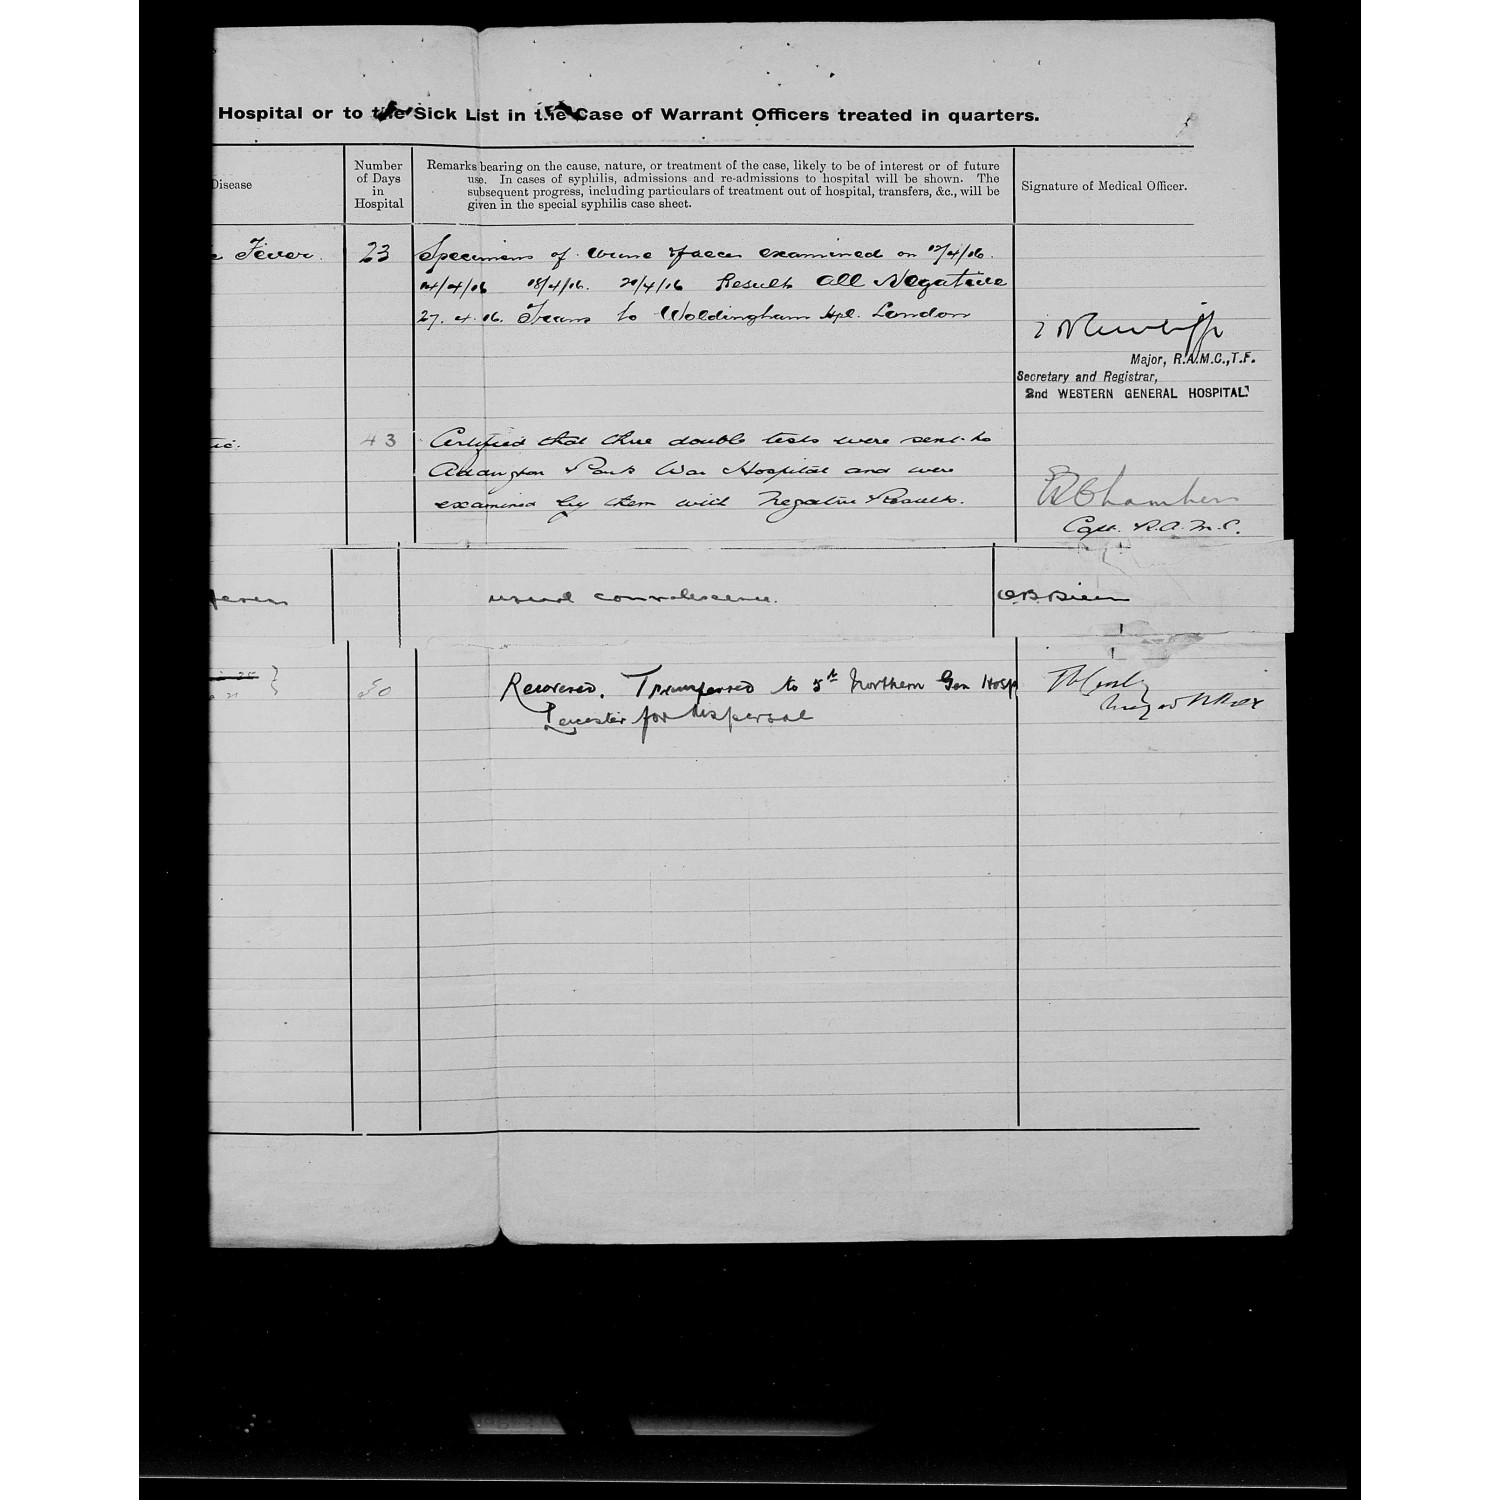 Hospital or to the Sick List in the Case of Warrant Officers treated in quarters.
Disease
Number
of Days
in
Hospital
Remarks bearing on the cause, nature, or treatment of the case, likely to be of interest or of future
use. In cases of syphilis, admissions and re-admissions to hospital will be shown. The
subsequent progress, including particulars of treatment out of hospital, transfers, &c., will be
given in the special syphilis case sheet.
Signature of Medical Officer.
Fever. 23 Specimens of urine & faeces examined on 12/4/16.
14/4/16 18/4/16. 20/4/16 Results All Negative
27. 4. 16. Trans to Woldingham Hpl. London
Major, R.A.M.C.,T.F.
Secretary and Registrar,
2nd WESTERN GENERAL HOSPITAL.
43 Certified that three double tests were sent to
Addington Park War Hospital and were
examined by them with Negative Results.
Chambers
Capt. R.A.M.C.
usual convalescence. O'BBrien
50 Recovered. Transferred to 5th Northern Gen Hosp
Leicester for dispersal
Major